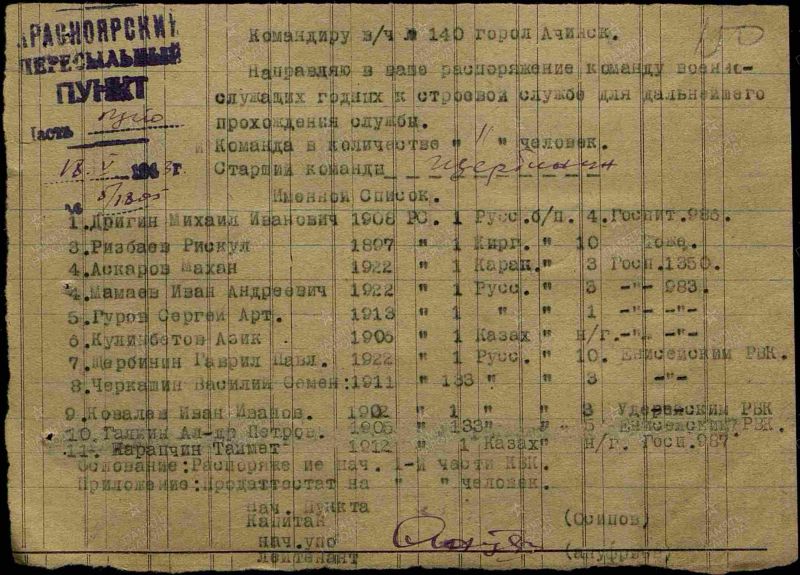 КРАСНОЯРСКИЙ
ПЕРЕСЫЛЬНЫЙ
ПУНКТ
Часть
18. V 1943 г
№ 5/1805
150
Командиру в/ч № 140 город Ачинск.
Направляю в ваше распоряжение команду военно-
служащих годных к строевой службе для дальнейшего
прохождения службы.
Команда в количестве " 11 " человек.
Старший команды Щербинин
Именной Список.
1.Дригин Михаил Иванович 1908 РС. 1 Русс.б/п. 4.Госпит.985.
3.Ризбаев Рискул 1897 " 1 Кирг. " 10 Тоже.
4.Аскаров Махан 1922 " 1 Карак." 3 Госп.1350.
4.Мамаев Иван Андреевич 1922 " 1 Русс. " 3 -"- 983.
5.Гуров Сергей Арт. 1913 " 1 " " 1 -"- -"-
6.Кулимбетов Азик 1905 " 1 Казах " н/г.-"- -"-
7.Щербинин Гаврил Павл. 1922 " 1 Русс. " 10. Енисейским РВК.
8.Черкашин Василий Семен:1911 " 133 " " 3 -"-
9.Ковалев Иван Иванов. 1902 " 1 " " 3 Удерейским РВК
10.Галкин Ал-др Петров. 1905 " 133" " 5 Енисейский РВК.
11. Жарапчин Таймет 1912 " 1 Казах" н/г. Госп.987.
Основание:Распоряже ие нач. 1-й части КВК.
Приложение:Продаттестат на " " человек.
Нач. пункта
Капитан (Осипов)
нач.упо
лейтенант (ануфриев)